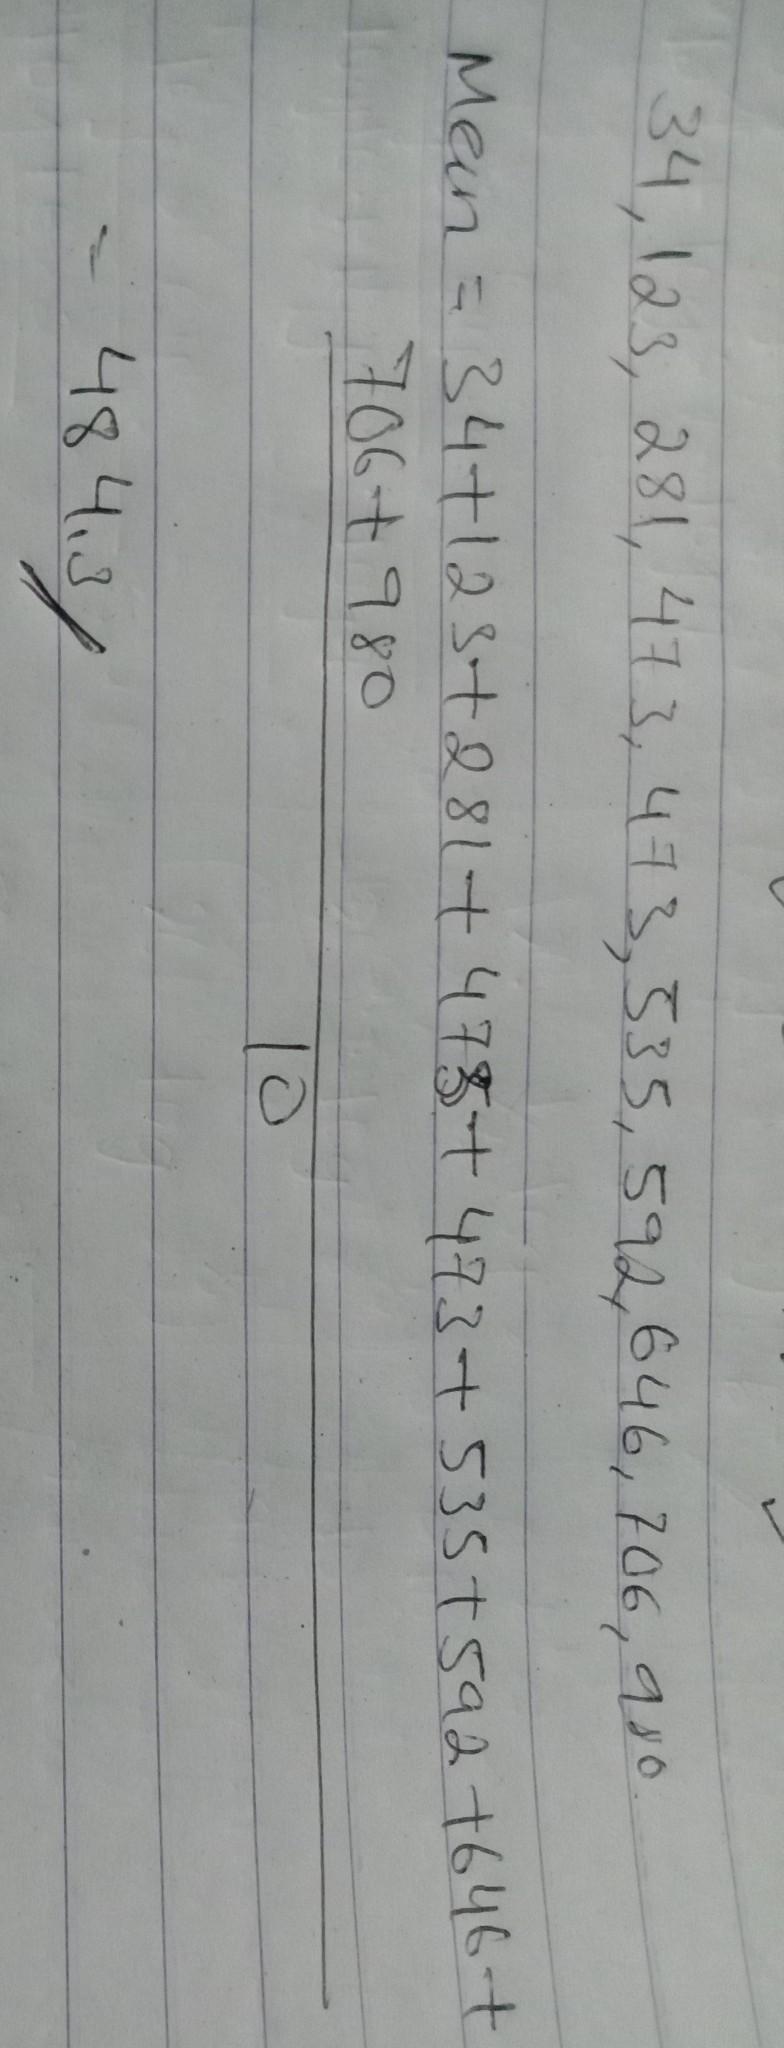 34, 123, 281, 473, 473, 535, 592, 646, 706, 980
Mean = 34+123+281+473+473+535+592+646+
706+980
10
= 484.3